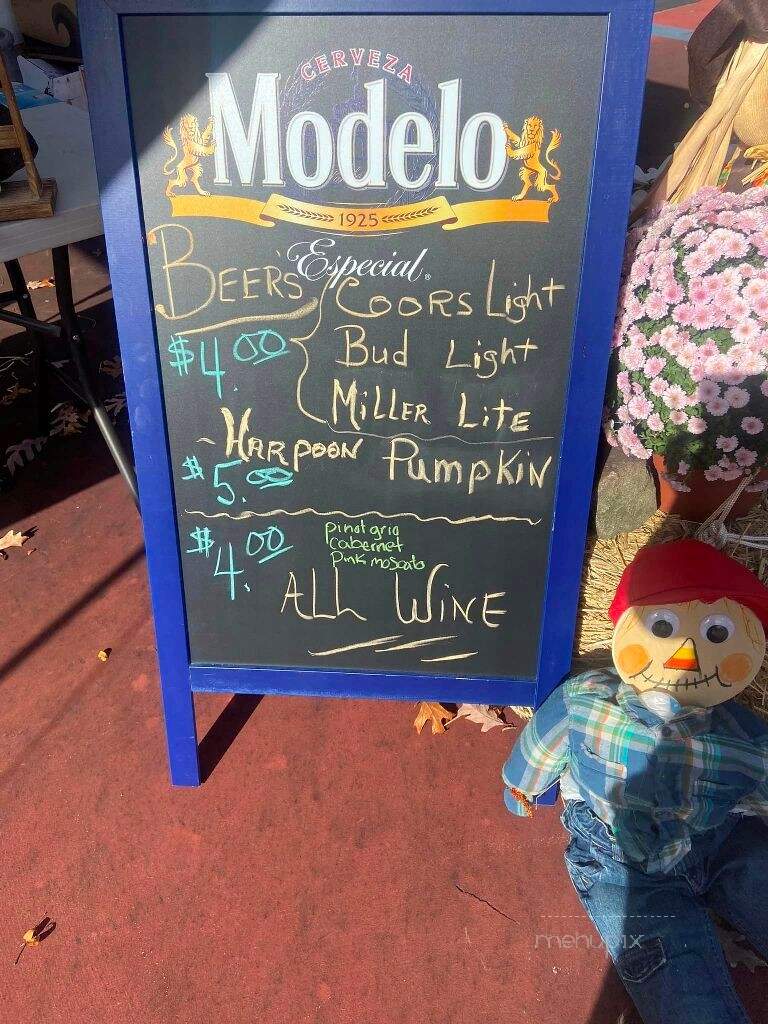 CERVEZA
Modelo
1925
Especial®
BEER'S
COORS Light
$4.00 Bud Light
MiLLER LiTE
- HARPOON PUMPKiN
$5.00
$4.00
pinot grio
Cabernet
Pink moscato
ALL WiNE
mehupix